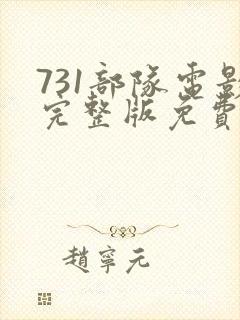 731部隊電影
完整版免費
趙寧元